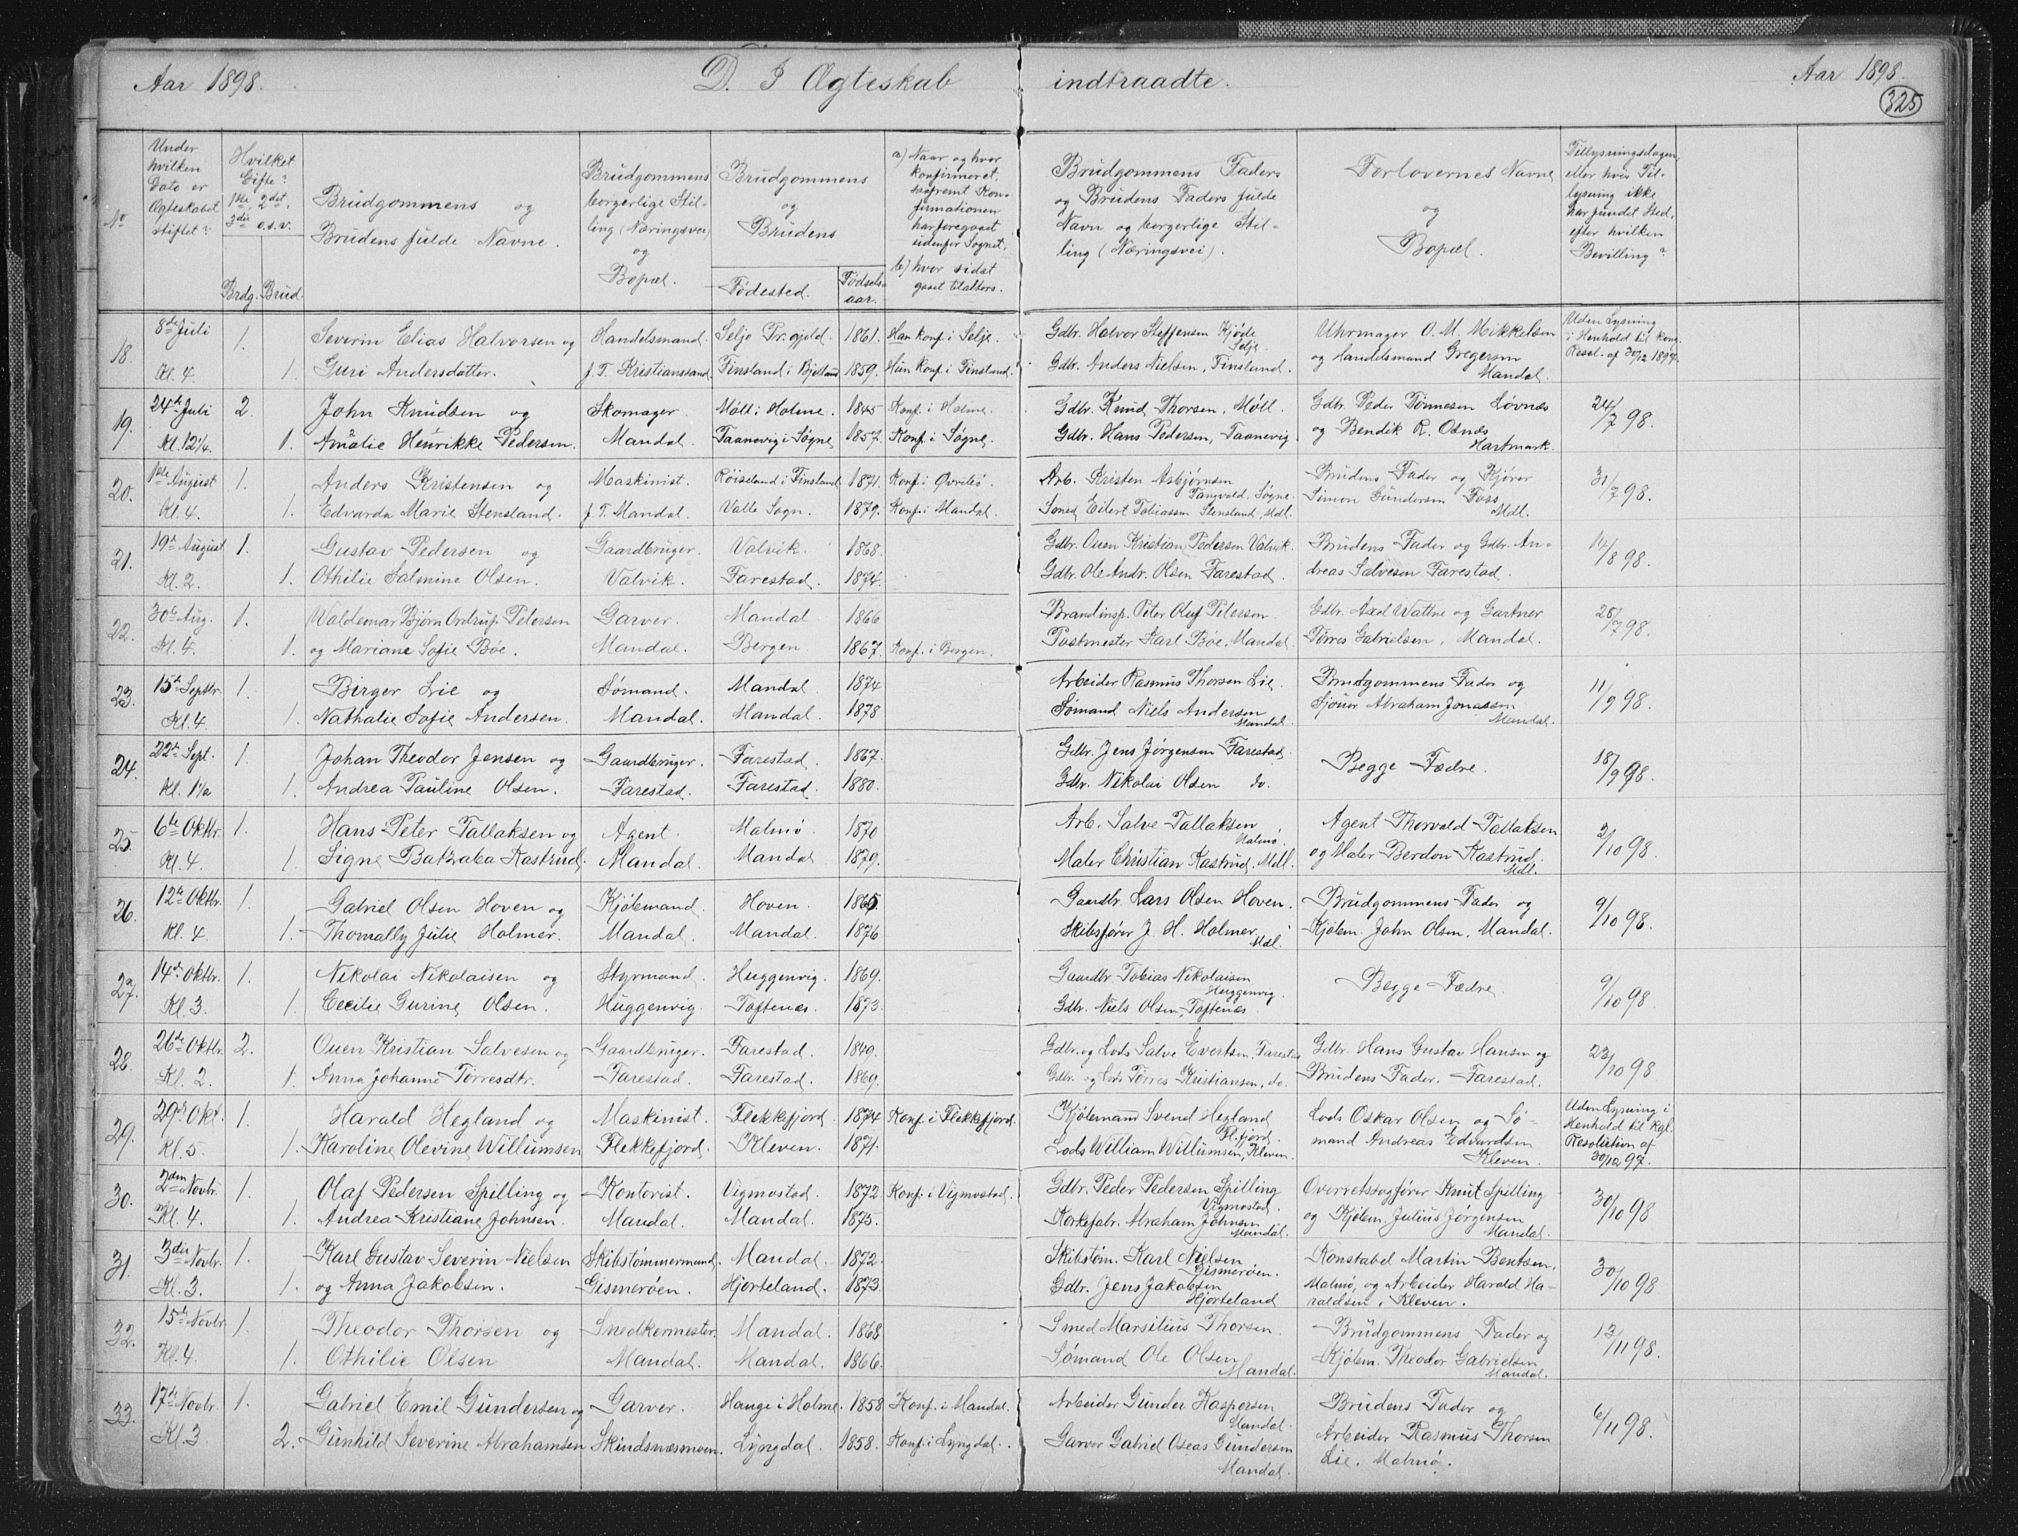 Aar 1898. D. I Ægteskab indtraadte. Aar 1898.
325
No
Under hvilken Dato er Ægteskabet stiftet?
Hvilket Gifte? 1ste 2det, 3die o.s.v.
Brdg. Brud.
Brudgommens og Brudens fulde Navne.
Brudgommens borgerlige Stilling (Næringsvei) og Bopæl.
Brudgommens og Brudens
Fødested. Fødselsaar.
a) Naar og hvor konfirmeret, saafremt Konfirmationen har foregaaet udenfor Sognet,
b) hvor sidst gaaet tilalters.
Brudgommens Faders og Brudens Faders fulde Navn og borgerlige Stilling (Næringsvei).
Forlovernes Navne og Bopæl.
Tillysningsdagen, eller hvis Tillysning ikke har fundet Sted, efter hvilken Bevilling?
18. 8de Juli 1. Severin Elias Halvorsen og Handelsmand. Selje Pr.gjeld. 1861. Han konf. i Selje. Gdbr. Halvor Steffensen Kjøde Selje. Uhrmager O. M. Mikkelsen Uden Lysning
Kl. 4 1. Guri Andersdatter. f. T. Kristianssand. Finsland i Bjelland 1859. Hun konf. i Finsland. Gdbr. Anders Nielsen, Finsland. og Handelsmand Gregersen Mandal. i Henhold til kong. Resol. af 30/12 1897.
19. 24de Juli 2. John Knudsen og Skomager. Møll i Holme. 1845 Konf. i Holme. Gdbr. Knud Thorsen, Møll. Gdbr. Peder Tønnesen Løvnæs 24/7 98.
Kl. 12 1/4. 1. Amalie Henrikke Pedersen. Mandal. Taanevig i Søgne, 1857. Konf. i Søgne. Gdbr. Hans Pedersen, Taanevig. og Bendik R. Osnæs Hartmark.
20. 1ste August 1. Anders Kristensen og Maskinist. Røiseland i Finsland 1871. Konf. i Øvrebø. Arb. Kristen Asbjørnsen Tangvald, Søgne. Brudens Fader og Kjører 31/7 98.
Kl. 4. 1. Edvarda Marie Stensland. f. T. Mandal. Valle Sogn. 1879. Konf. i Mandal. Smed Eilert Tobiassen Stensland, Mdl. Simon Gundersen Foss Mdl.
21. 19de August 1. Gustav Pedersen og Gaardbruger. Valvik. 1868. Gdbr. Ouen Kristian Pedersen Valvik. Brudens Fader og Gdbr. An- 14/8 98.
Kl. 2. 1. Othilie Salmine Olsen. Valvik. Farestad. 1874. Gdbr. Ole Andr. Olsen Farestad. dreas Salvesen Farestad.
22. 30te Aug. 1. Waldemar Bjørn Ordrup Petersen Garver. Mandal 1866 Brandinsp. Peter Oluf Petersen. Gdbr. Axel Wattne og Gartner 28/7 98.
Kl. 4. 1. og Mariane Sofie Bøe. Mandal. Bergen. 1867. Konf. i Bergen. Postmester Karl Bøe, Mandal. Tørres Gabrielsen, Mandal.
23. 15de Septbr. 1. Birger Lie og Sømand. Mandal 1874 Arbeider Rasmus Thorsen Lie. Brudgommens Fader og 11/9 98.
Kl. 4 1. Nathalie Sofie Andersen. Mandal. Mandal. 1878 Sømand Niels Andersen Mandal. Sjouer Abraham Jonassen Mandal.
24. 22de Sept. 1. Johan Theodor Jensen og Gaardbruger. Farestad. 1867. Gdbr. Jens Jørgensen Farestad. Begge Fædre. 18/9 98.
Kl. 1 1/2 1. Andrea Pauline Olsen. Farestad. Farestad. 1880. Gdbr. Nikolai Olsen do.
25. 6te Oktbr. 1. Hans Peter Tallaksen og Agent. Malmø. 1870 Arb. Salve Tallaksen Malmø. Agent Thorvald Tallaksen 2/10 98.
Kl. 4. 1. Signe Batzeba Kastrud. Mandal. Mandal 1879. Maler Christian Kastrud, Mdl. og Maler Berdon Kastrud. Mdl.
26. 12te Oktbr. 1. Gabriel Olsen Hoven og Kjøbmand. Hoven. 1865. Gaardbr. Lars Olsen Hoven. Brudgommens Fader og 9/10 98.
Kl. 4 1. Thomally Julie Holmer. Mandal. Mandal. 1876 Skibsfører J. H. Holmer, Mdl. Kjøbm. John Olsen, Mandal.
27. 14de Oktbr. 1. Nikolai Nikolaisen og Styrmand. Huggenvig. 1869. Gaardbr. Tobias Nikolaisen Huggenvig. Begge Fædre. 9/10 98.
Kl. 3. 1. Cecilie Gurine Olsen. Huggenvig. Toftenæs. 1873. Gdbr. Niels Olsen, Toftenæs.
28. 26de Oktbr. 2. Ouen Kristian Salvesen og Gaardbruger. Farestad. 1849. Gdbr. og Lods Salve Evertsen, Farestad Gdbr. Hans Gustav Hansen og 23/10 98.
Kl. 2. 1. Anna Johanne Tørresdtr. Farestad. Farestad. 1869. Gdbr. og Lods Tørres Kristiansen, do. Brudens Fader. Farestad.
29. 29de Okt. 1. Harald Hegland og Maskinist. Flekkefjord. 1874 Konf. i Flekkefjord. Kjøbmand Svend Hegland Fl.fjord. Lods Oskar Olsen og Sø- Uden Lysning i Henhold til Kgl.
Kl. 5 1. Karoline Olevine Willumsen Flekkefjord. Kleven. 1871. Lods William Willumsen, Kleven. mand Andreas Edvardsen Kleven. Resolution af 30/12 97.
30. 2den Novbr. 1. Olaf Pedersen Spilling og Kontorist. Vigmostad. 1872. Konf. i Vigmostad. Gdbr. Peder Pedersen Spilling Vigmostad. Overretssagfører Knut Spilling 30/10 98
Kl. 4. 1. Andrea Kristiane Johnsen. Mandal. Mandal. 1875. Korkefabr. Abraham Johnsen Mandal. og Kjøbm. Julius Jørgensen Mandal.
31. 3die Novbr. 1. Karl Gustav Severin Nielsen Skibstømmermand. Mandal. 1872. Skibstøm. Karl Nielsen Gismerøen. Konstabel Martin Bentsen, 30/10 98
Kl. 3. 1. og Anna Jakobsen. Gismerøen. Hjorteland. 1873. Gdbr. Jens Jakobsen Hjorteland Malmø, og Arbeider Harald Haraldsen, Kleven.
32. 15de Novbr. 1. Theodor Thorsen og Snedkermester. Mandal. 1868 Smed Marsilius Thorsen. Brudgommens Fader og 13/11 98.
Kl. 4. 1. Othilie Olsen Mandal. Mandal. 1866. Sømand Ole Olsen Mandal. Kjøbm. Theodor Gabrielsen Mandal.
33. 17de Novbr. 1. Gabriel Emil Gundersen og Garver. Hauge i Holme. 1858 Konf. i Mandal. Arbeider Gunder Kaspersen Mandal. Brudens Fader og 6/11 98.
Kl. 3 2. Gunhild Severine Abrahamsen Skindsnæsmoen. Lyngdal. 1858. Konf. i Lyngdal. Garver Gabriel Oseas Gundersen Mandal. Arbeider Rasmus Thorsen Lie, Malmø.